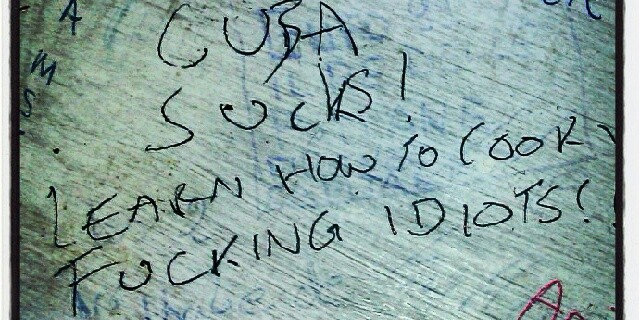 A
M
S
CUBA
SUCKS!
LEARN HOW TO COOK
FUCKING IDIOTS!